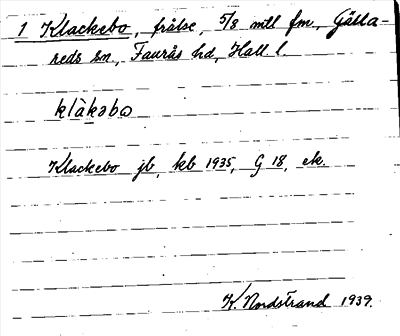 1 Klackebo, frälse, 5/8 mtl fm, Gälla-
reds sn, Faurås hd, Hall. l.
klàkəbo
Klackebo jb, kb 1935, G 18, ek.
K. Nordstrand 1939.